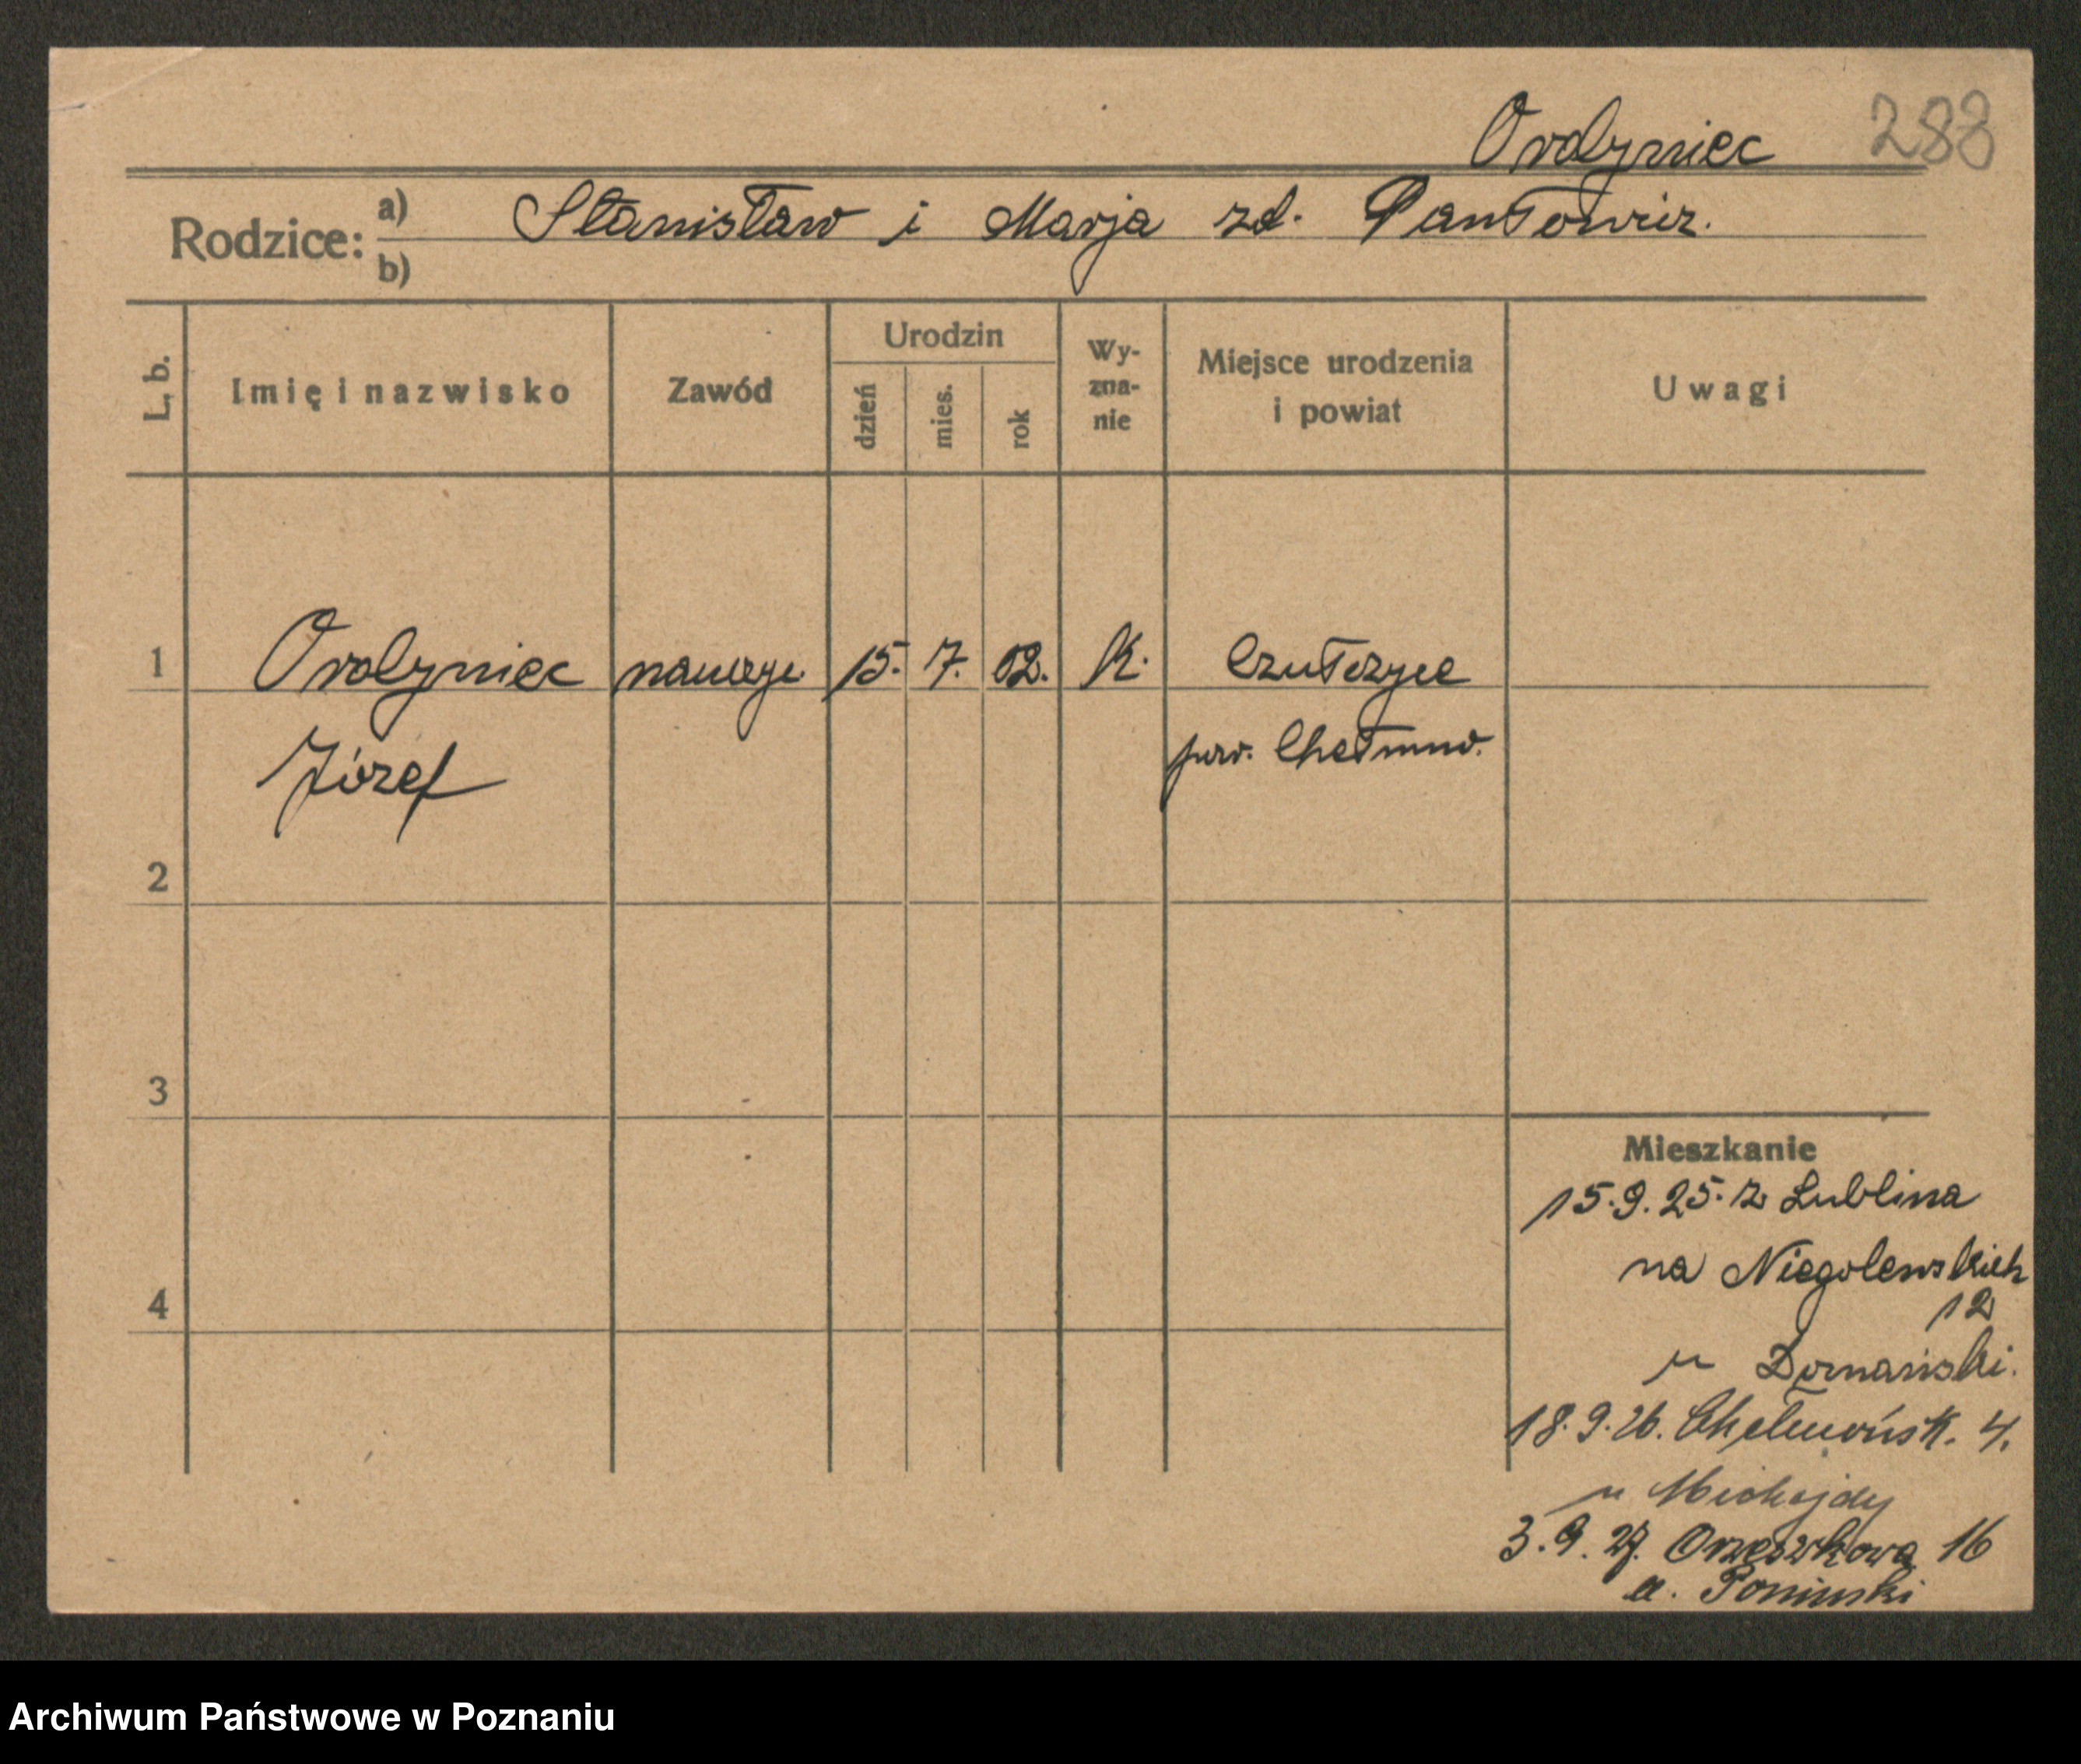 Ordyniec 288
Rodzice: a) Stanisław i Marja zd. Pawłowicz.
b)
L. b.
Imię i nazwisko
Zawód
Urodzin
dzień
mies.
rok
Wy-
zna-
nie
Miejsce urodzenia
i powiat
Uwagi
1 Ordyniec 15. 7. 02. K. Czułczyce
Józef pow. Chełmno.
2
3
4
Mieszkanie
15.9.25. z Lublina
na Niegolewskich
12
u
18.9.26. Chełmońsk. 4.
u Michejdy
3.9.27. Orzeszkowa 16
a. Poniński
Archiwum Państwowe w Poznaniu